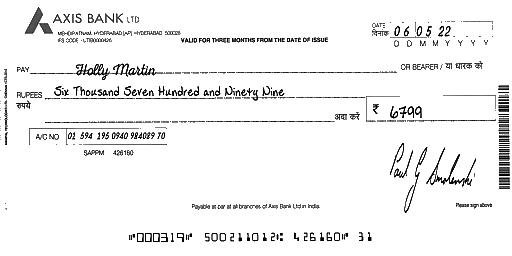 AXIS BANK LTD
MEHDIPATNAM, HYDERABAD [AP] HYDERABAD 500028
IFS CODE - UTIB0000426
VALID FOR THREE MONTHS FROM THE DATE OF ISSUE
DATE
दिनांक
06 05 22
D D M M Y Y Y Y
PAY Holly Martin OR BEARER / या धारक को
RUPEES Six Thousand Seven Hundred and Ninety Nine
रुपये अदा करें ₹ 6799
A/C NO 01 594 195 0940 984089 70
SAPPM 426160
Payable at par at all branches of Axis Bank Ltd in India.
Please sign above
"000319" 500211012: 426160" 31